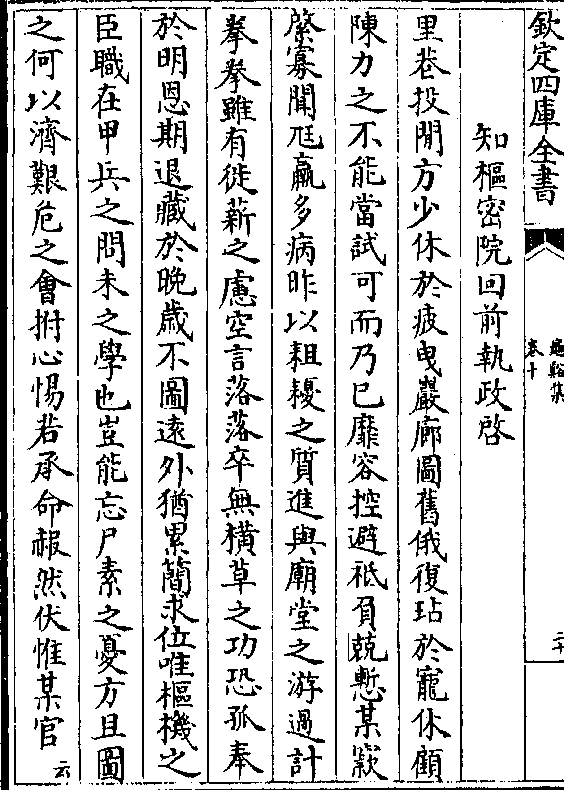 欽定四庫全書
龜谿集
卷十
二十
知樞密院回前執政啓
里巷投閒方少休於疲曳巖廊圖舊俄復玷於寵休顧
陳力之不能當試可而乃已靡容控避祗負兢慙某窾
啓寡聞尫羸多病昨以耝耰之質進與廟堂之游過計
拳拳雖有徙薪之慮空言落落卒無橫草之功恐孤奉
於明恩期退藏於晚歲不圖遠外猶累簡求位唯樞機之
臣職在甲兵之問未之學也豈能忘尸素之憂方且圖
之何以濟艱危之會拊心惕若承命赧然伏惟某官云